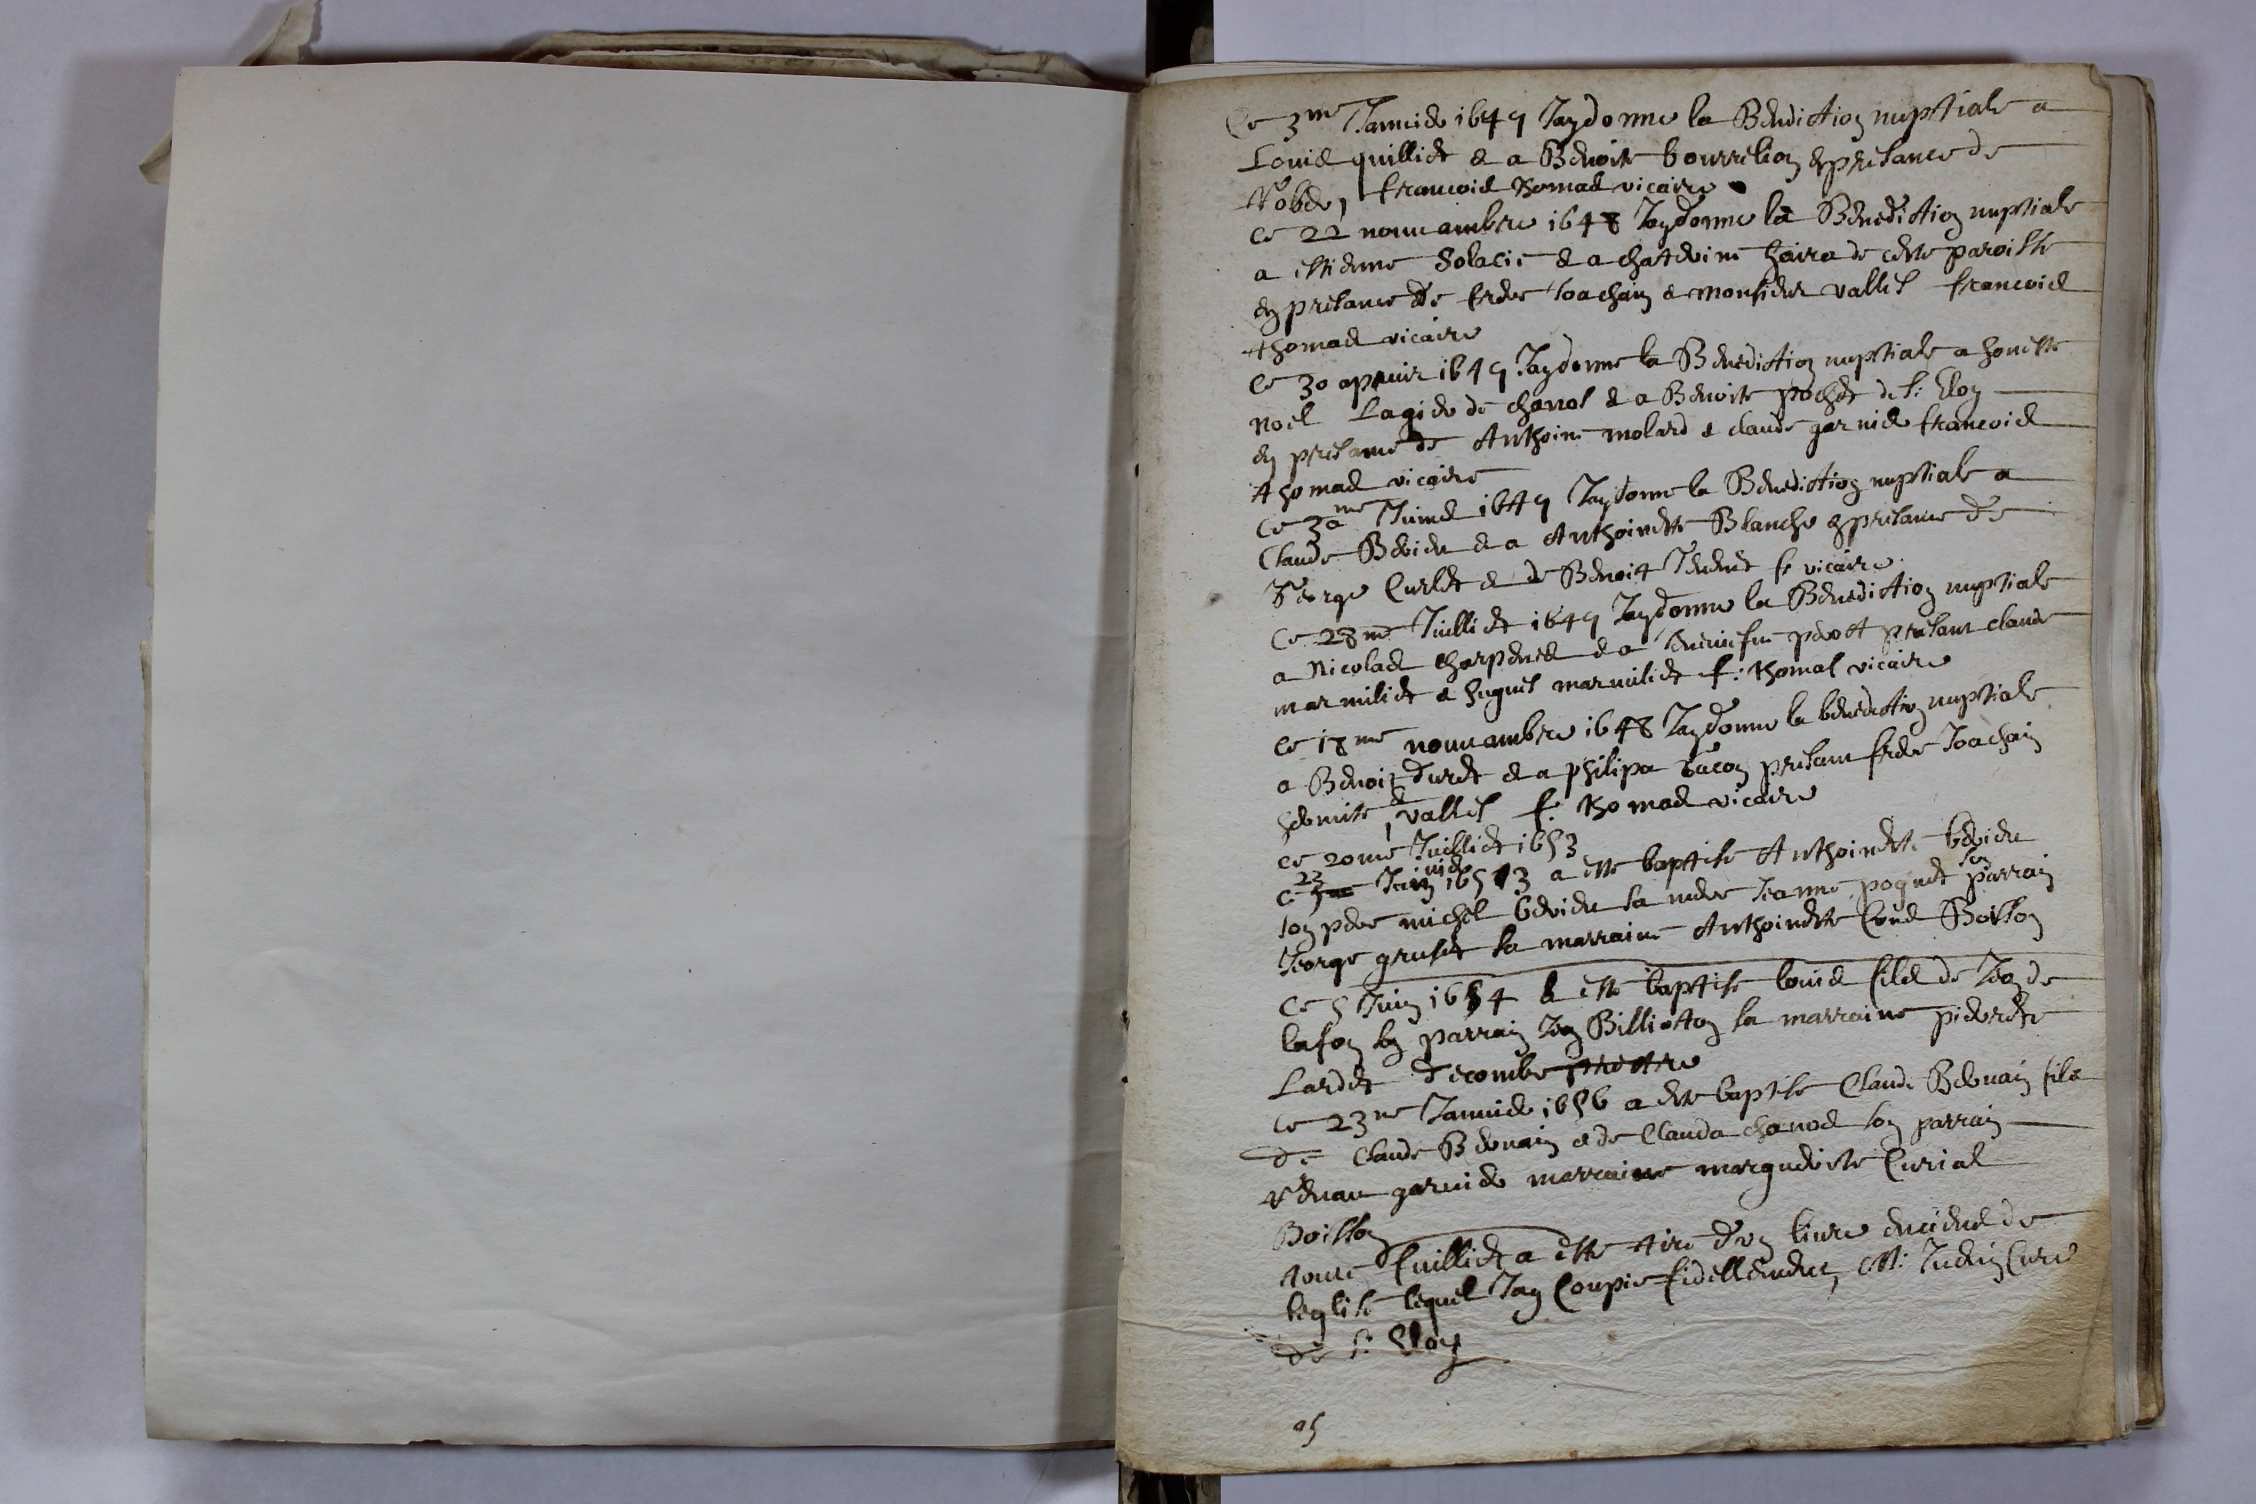 Ce 3me Januier 1649 Jay donne la Benediction nuptiale a
Louis quilliet & a Benoite bourrelion en presance de
francois thomas vicaire
Ce 22 nouuambre 1648 Jay donne la Benediction nuptiale
a estienne & a chaterine de ceste paroisse
en presance de frere Joachain & monsieur valles francois
thomas vicaire
Ce 30 apuvir 1649 Jay donne la Benediction nuptiale a honeste
noel Lagier de chanos & a Benoite pochet de st: Eloy
en presance de Anthoine molard & claude garnier francois
thomas vicaire
Ce 3me Juin 1649 Jay donne la Benediction nuptiale a
Claude Beviere & a Anthoinette Blanche en presance de
George Curlet & de Benoit f vicaire
Ce 28me Juilliet 1649 Jay donne la Benediction nuptiale
a Nicolas & a presant claude
marmiliet & hugues marmiliet f: thomas vicaire
Ce 18me nouuambre 1648 Jay donne la benediction nuptiale
a Benoit duret & a philipa bacon presant frere Joachain
hermite & valles f: thomas vicaire
ce 20me Juilliet 1653
Ce 23 1653 a este baptise Anthoinette beviere
son pere michel beviere sa mere Jeanne pognet son parrain
George gruset sa marraine Anthoinette Cond Boisson
Ce 5 Juin 1654 a este baptise louis filz de Jean de
lafon son parrain Jean Billiotton sa marraine pierrette
Lardet decombe prettre
Ce 23me Januier 1656 a este baptise Claude Bevouain filz
de Claude Bevouain & de Clauda chanos son parrain
garnier marraine marguerite Curial
Boisson
Ce fuilliet a este tire d'un liure de
leglise lequel Jay Coupie fidellement, Cure
de st: Eloy